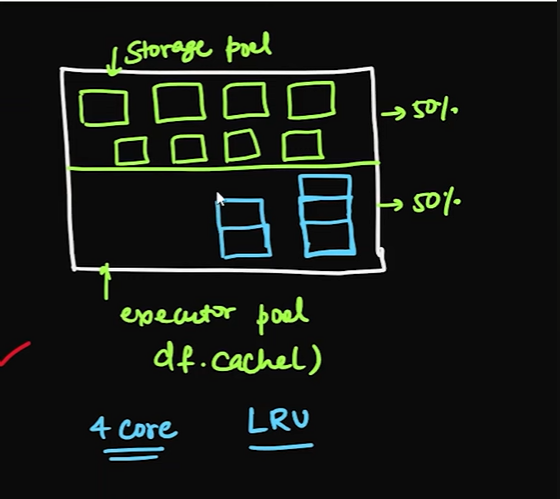 Storage pool
50%
50%
executor pool
df.cache()
4 core
LRU